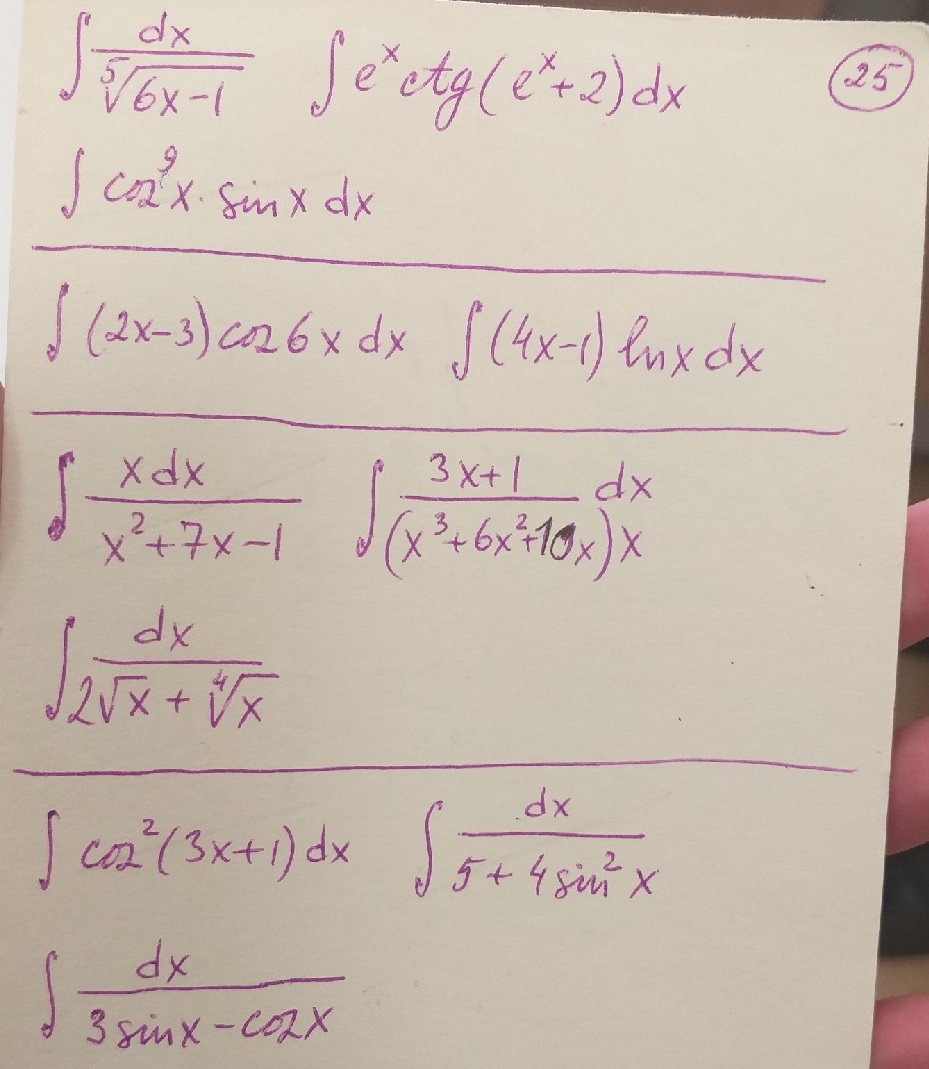 ∫ dx / ⁵√(6x-1) ∫ eˣ ctg(eˣ+2) dx 25
∫ cos⁹x · sin x dx
∫ (2x-3) cos 6x dx ∫ (4x-1) ln x dx
∫ x dx / (x²+7x-1) ∫ (3x+1) / ((x³+6x²+10x)x) dx
∫ dx / (2√x + ⁴√x)
∫ cos²(3x+1) dx ∫ dx / (5+4 sin²x)
∫ dx / (3 sin x - cos x)